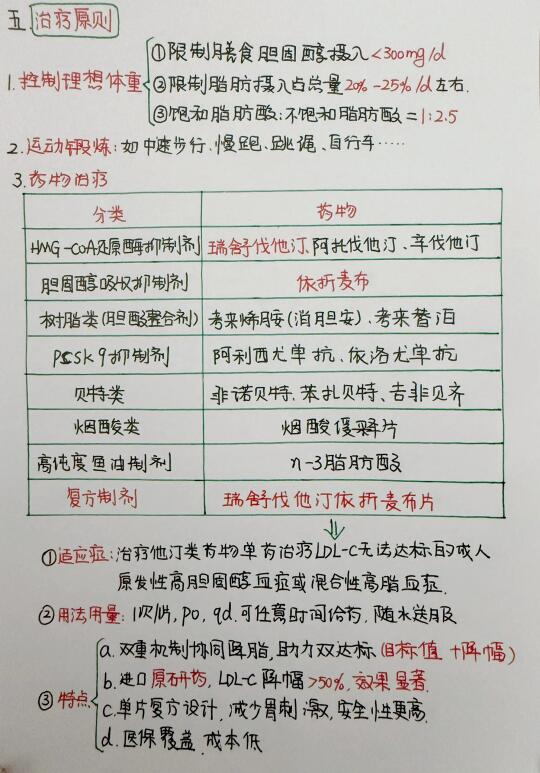 五. 治疗原则
1. 控制理想体重
①限制膳食胆固醇摄入<300mg/d
②限制脂肪摄入占总量20%-25%/d左右.
③饱和脂肪酸:不饱和脂肪酸=1:2.5
2. 运动锻炼:如中速步行、慢跑、跳绳、自行车……
3. 药物治疗
分类 药物
HMG-CoA还原酶抑制剂 瑞舒伐他汀、阿托伐他汀、辛伐他汀
胆固醇吸收抑制剂 依折麦布
树脂类(胆酸螯合剂) 考来烯胺(消胆安)、考来替泊
PCSK9抑制剂 阿利西尤单抗、依洛尤单抗
贝特类 非诺贝特、苯扎贝特、吉非贝齐
烟酸类 烟酸缓释片
高纯度鱼油制剂 n-3脂肪酸
复方制剂 瑞舒伐他汀依折麦布片
①适应症:治疗他汀类药物单药治疗LDL-C无法达标的成人
原发性高胆固醇血症或混合性高脂血症.
②用法用量:1次1片, po, qd. 可任意时间给药, 随水送服
③特点
a. 双重机制协同降脂, 助力双达标(目标值+降幅)
b. 进口原研药, LDL-C降幅>50%, 效果显著.
c. 单片复方设计, 减少胃刺激, 安全性更高.
d. 医保覆盖, 成本低